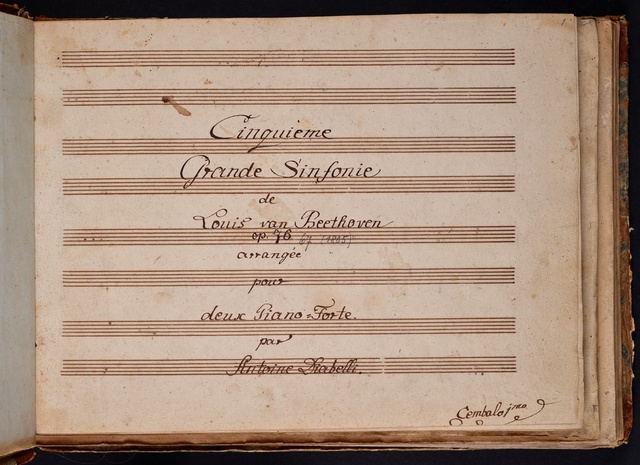 Cinquieme
Grande Sinfonie
de
Louis van Beethoven
op. 76 67 (1805)
arrangée
pour
deux Piano=Forte.
par
Antoine Diabelli.
Cembalo 1mo